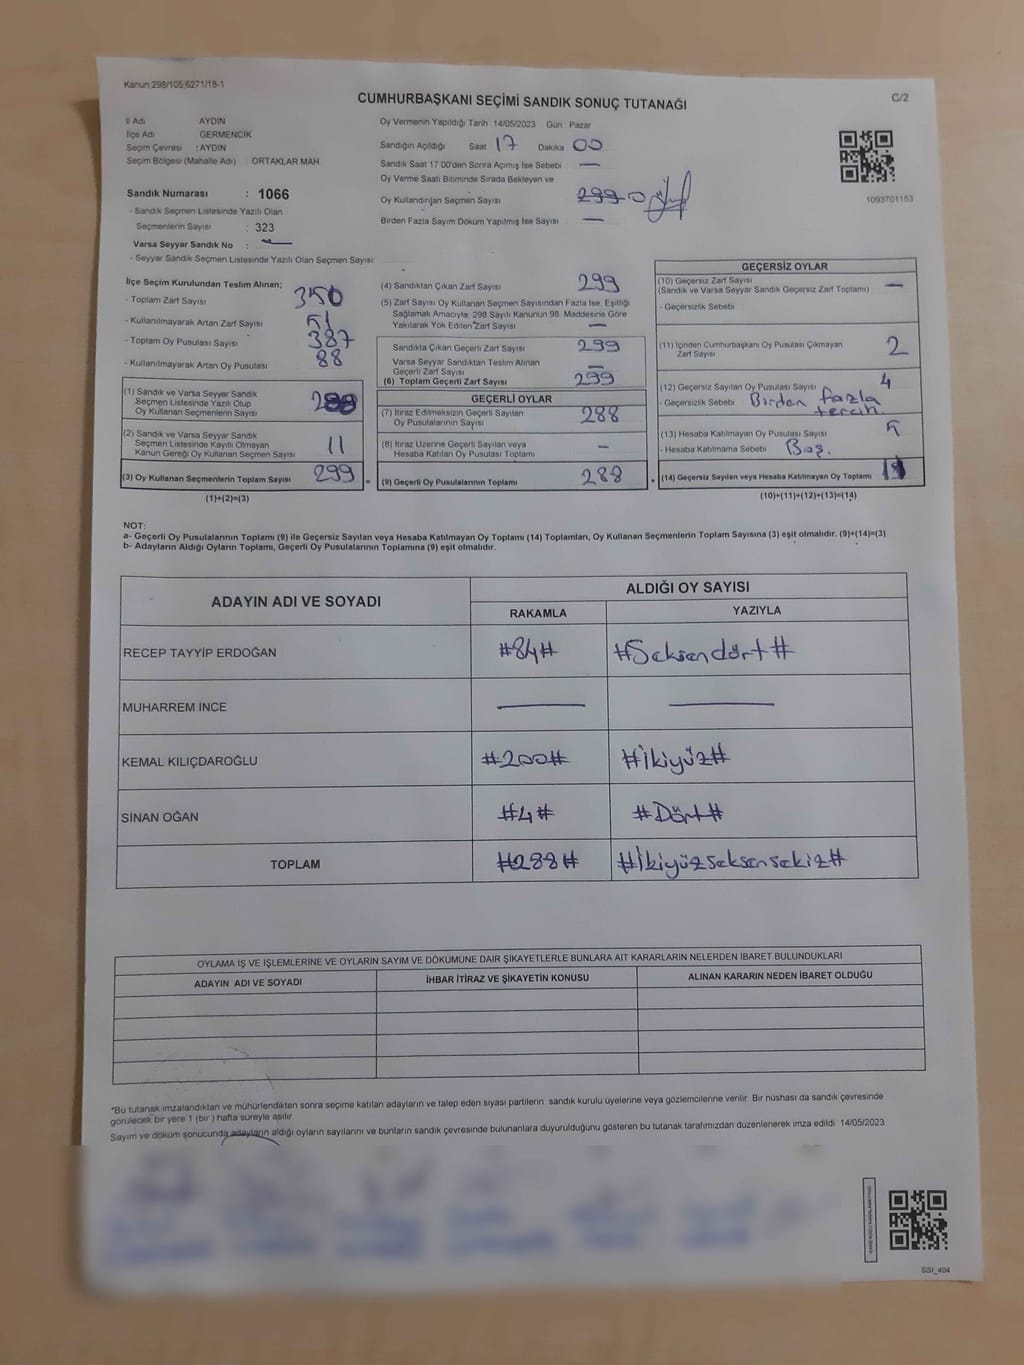 Kanun:298/105;6271/18-1
CUMHURBAŞKANI SEÇİMİ SANDIK SONUÇ TUTANAĞI
C/2
İl Adı AYDIN
İlçe Adı GERMENCİK
Seçim Çevresi : AYDIN
Seçim Bölgesi (Mahalle Adı) : ORTAKLAR MAH.
Sandık Numarası : 1066
- Sandık Seçmen Listesinde Yazılı Olan
Seçmenlerin Sayısı : 323
Varsa Seyyar Sandık No :
- Seyyar Sandık Seçmen Listesinde Yazılı Olan Seçmen Sayısı:
Oy Vermenin Yapıldığı Tarih 14/05/2023 Gün Pazar
Sandığın Açıldığı Saat 17 Dakika 00
Sandık Saat 17 00'den Sonra Açımış İse Sebebi —
Oy Verme Saati Bitiminde Sırada Bekleyen ve
Oy Kullandırılan Seçmen Sayısı 299 0
Birden Fazla Sayım Döküm Yapılmış İse Sayısı —
1093701153
İlçe Seçim Kurulundan Teslim Alınan;
- Toplam Zarf Sayısı 350
- Kullanılmayarak Artan Zarf Sayısı 51
- Toplam Oy Pusulası Sayısı 387
- Kullanılmayarak Artan Oy Pusulası 88
(1) Sandık ve Varsa Seyyar Sandık
Seçmen Listesinde Yazılı Olup
Oy Kullanan Seçmenlerin Sayısı 288
(2) Sandık ve Varsa Seyyar Sandık
Seçmen Listesinde Kayıtlı Olmayan
Kanun Gereği Oy Kullanan Seçmen Sayısı 11
(3) Oy Kullanan Seçmenlerin Toplam Sayısı 299
(1)+(2)=(3)
(4) Sandıktan Çıkan Zarf Sayısı 299
(5) Zarf Sayısı Oy Kullanan Seçmen Sayısından Fazla İse, Eşitliği
Sağlamak Amacıyla, 298 Sayılı Kanunun 98. Maddesine Göre
Yakılarak Yok Edilen Zarf Sayısı —
Sandıkta Çıkan Geçerli Zarf Sayısı 299
Varsa Seyyar Sandıktan Teslim Alınan
Geçerli Zarf Sayısı —
(6) Toplam Geçerli Zarf Sayısı 299
GEÇERLİ OYLAR
(7) İtiraz Edilmeksizin Geçerli Sayılan
Oy Pusulalarının Sayısı 288
(8) İtiraz Üzerine Geçerli Sayılan veya
Hesaba Katılan Oy Pusulası Toplamı —
(9) Geçerli Oy Pusulalarının Toplamı 288
GEÇERSİZ OYLAR
(10) Geçersiz Zarf Sayısı
(Sandık ve Varsa Seyyar Sandık Geçersiz Zarf Toplamı) —
- Geçersizlik Sebebi
(11) İçinden Cumhurbaşkanı Oy Pusulası Çıkmayan
Zarf Sayısı 2
(12) Geçersiz Sayılan Oy Pusulası Sayısı 4
- Geçersizlik Sebebi Birden fazla
tercih.
(13) Hesaba Katılmayan Oy Pusulası Sayısı 5
- Hesaba Katılmama Sebebi Boş.
(14) Geçersiz Sayılan veya Hesaba Katılmayan Oy Toplamı 11
(10)+(11)+(12)+(13)=(14)
NOT:
a- Geçerli Oy Pusulalarının Toplamı (9) ile Geçersiz Sayılan veya Hesaba Katılmayan Oy Toplamı (14) Toplamları, Oy Kullanan Seçmenlerin Toplam Sayısına (3) eşit olmalıdır. (9)+(14)=(3)
b- Adayların Aldığı Oyların Toplamı, Geçerli Oy Pusulalarının Toplamına (9) eşit olmalıdır.
ADAYIN ADI VE SOYADI ALDIĞI OY SAYISI
RAKAMLA YAZIYLA
RECEP TAYYİP ERDOĞAN #84# #Seksendört#
MUHARREM İNCE — —
KEMAL KILIÇDAROĞLU #200# #İkiyüz#
SİNAN OĞAN #4# #Dört#
TOPLAM #288# #İkiyüzseksensekiz#
OYLAMA İŞ VE İŞLEMLERİNE VE OYLARIN SAYIM VE DÖKÜMÜNE DAİR ŞİKAYETLERLE BUNLARA AİT KARARLARIN NELERDEN İBARET BULUNDUKLARI
ADAYIN ADI VE SOYADI İHBAR İTİRAZ VE ŞİKAYETİN KONUSU ALINAN KARARIN NEDEN İBARET OLDUĞU
*Bu tutanak imzalandıktan ve mühürlendikten sonra seçime katılan adayların ve talep eden siyasi partilerin sandık kurulu üyelerine veya gözlemcilerine verilir. Bir nüshası da sandık çevresinde
görülecek bir yere 1 (bir ) hafta süreyle asılır
Sayım ve döküm sonucunda adayların aldığı oyların sayılarını ve bunların sandık çevresinde bulunanlara duyurulduğunu gösteren bu tutanak tarafımızdan düzenlenerek imza edildi 14/05/2023
SSI_404